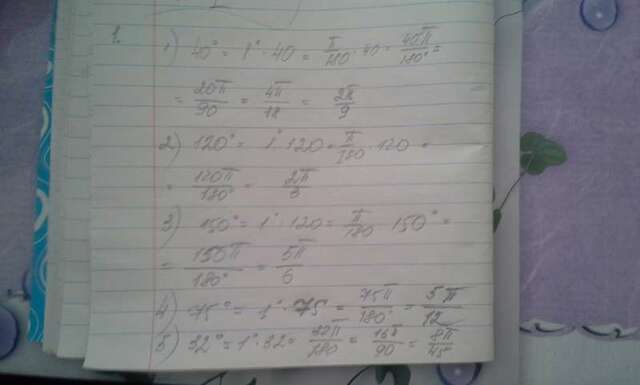 1.
1) 40° = 1° · 40 = π/180 · 40 = 40π/180° =
= 20π/90 = 4π/18 = 2π/9
2) 120° = 1° · 120 = π/180 · 120 =
= 120π/180° = 2π/3
3) 150° = 1° · 120 = π/180 · 150° =
= 150π/180° = 5π/6
4) 75° = 1° · 75 = 75π/180° = 5π/12
5) 32° = 1° · 32 = 32π/180 = 16π/90 = 8π/45°